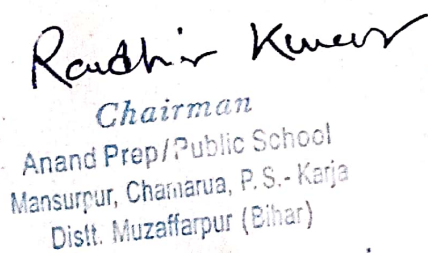 Randhir Kumar
Chairman
Anand Prep/Public School
Mansurpur, Chamarua, P.S.- Karja
Distt. Muzaffarpur (Bihar)